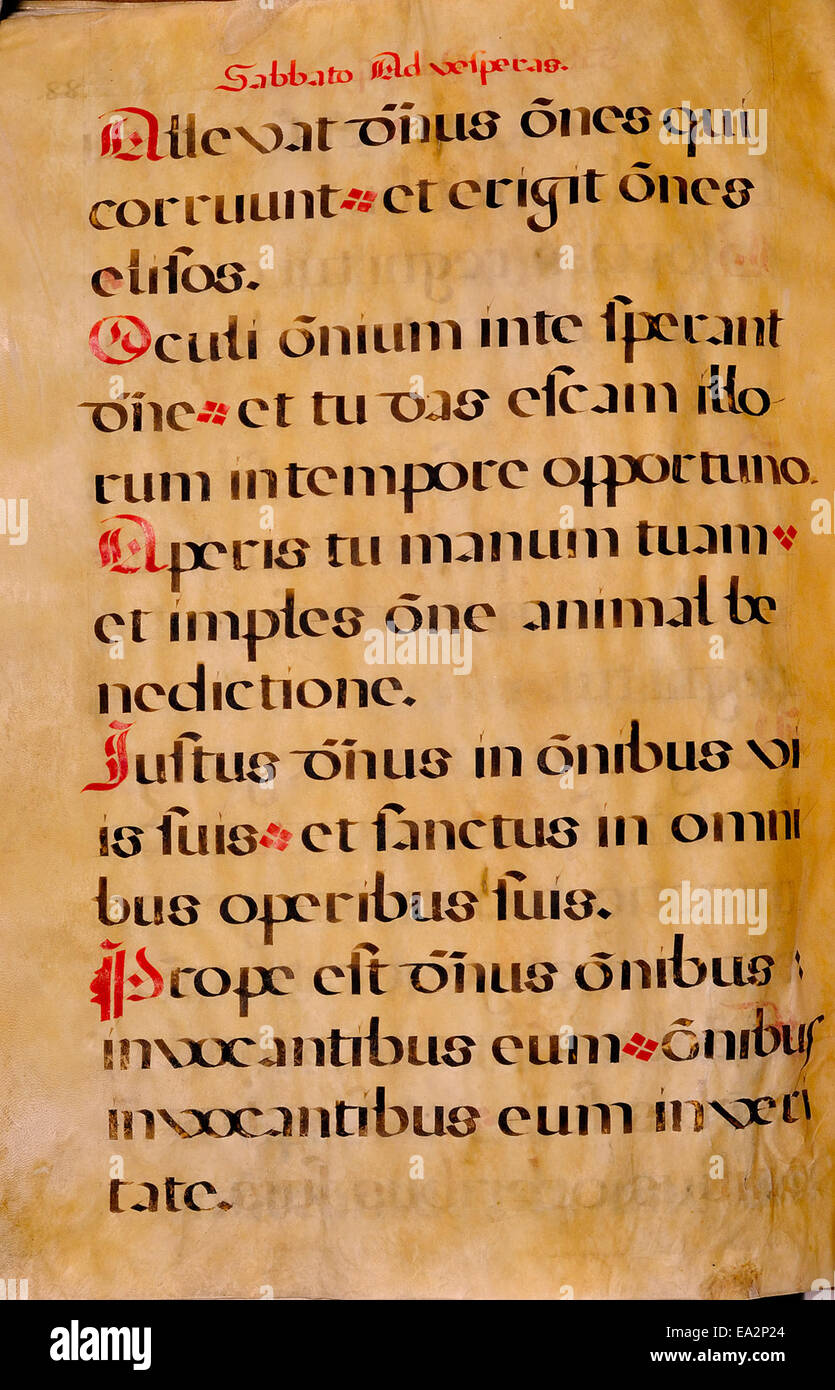 Sabbato Ad vesperas.
Allevat dñus õnes qui
corruunt et erigit õnes
eliſos.
Oculi õnium inte ſperant
dñe et tu das eſcam illo
rum in tempore opportuno.
Aperis tu manum tuam
et imples õne animal be
nedictione.
Juſtus dñus in õnibus vi
is ſuis et ſanctus in omni
bus operibus ſuis.
Prope eſt dñus õnibus
invocantibus eum õnibuſ
invocantibus eum in veri
tate.
alamy stock photo
EA2P24
www.alamy.com